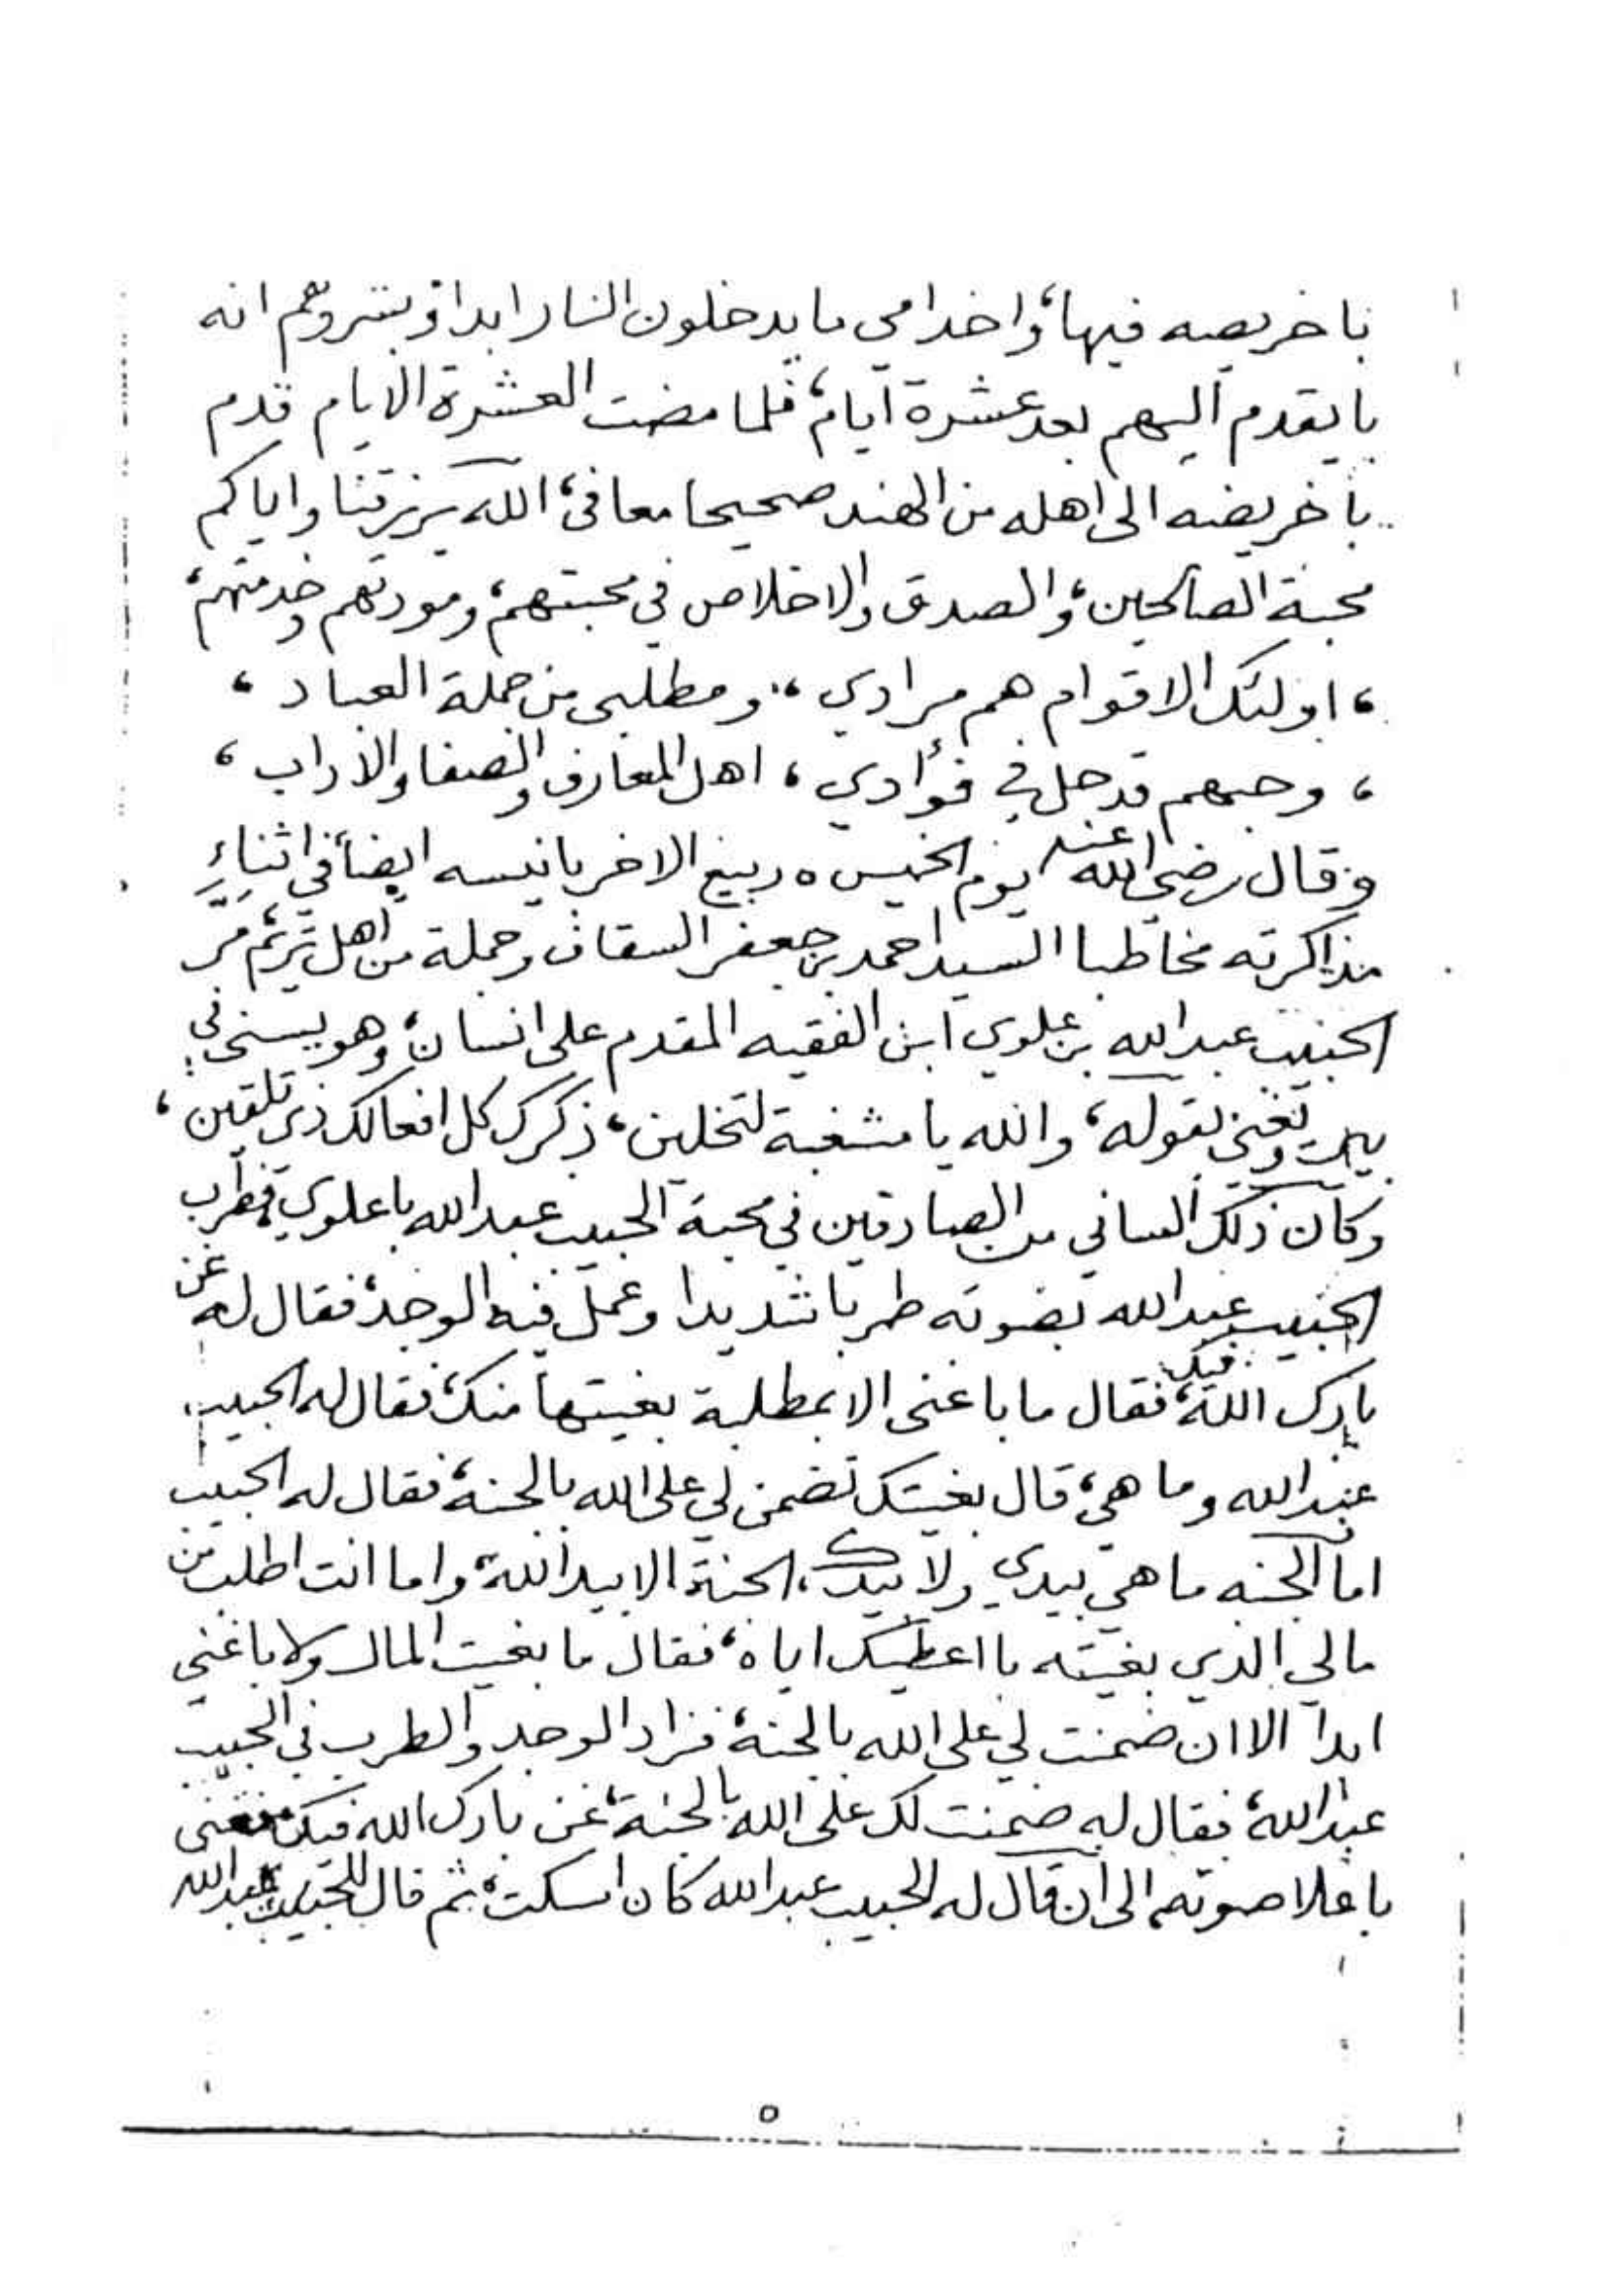 باخريصه فيها، واخدامي ما يدخلون النار ابدا، وبشروهم انه
بايقدم اليهم بعد عشرة ايام، فلما مضت العشرة الايام قدم
باخريصه الى اهله من الهند صحيحا معافى، الله يرزقنا واياكم
محبة الصالحين، والصدق والاخلاص في محبتهم، ومودتهم وخدمتهم،
، اولئك الاقوام هم مرادي ، ومطلبي من جملة العباد ،
، وحبهم قد حل في فؤادي ، اهل المعارف والصفا والاداب ،
وقال رضي الله عنه يوم الخميس ٥ ربيع الاخر بانيسه ايضا في اثناء
مذاكرته مخاطبا السيد احمد بن جعفر السقاف وجملة من اهل تريم مر
الحبيب عبدالله بن علوي ابن الفقيه المقدم على انسان، وهو يسني في
بير وتغني بقوله، والله يا مشغبة لتخلين، ذكرك كل افعالك ذي تلقين،
وكان ذلك الساني من الصادقين في محبة الحبيب عبدالله باعلوي، فطرب
الحبيب عبدالله بصوته طربا شديدا وعمل فيه الوجد، فقال له غن
بارك الله فيك، فقال ما باغني الا بمطلبة بغيتها منك، فقال له الحبيب
عبدالله وما هي، قال بغيتك تضمن لي على الله بالجنة، فقال له الحبيب
اما الجنه ما هي بيدي ولا بيدك، الجنة الا بيد الله، واما انت اطلب من
مالي الذي بغيته با اعطيك اياه، فقال ما بغيت المال ولا باغني
ابدا الا ان ضمنت لي على الله بالجنة، فزاد الوجد والطرب في الحبيب
عبدالله، فقال له ضمنت لك على الله بالجنة، غن بارك الله فيك، فغنى
باعلا صوته الى ان قال له الحبيب عبدالله كان اسكت، ثم قال للحبيب عبدالله
٥